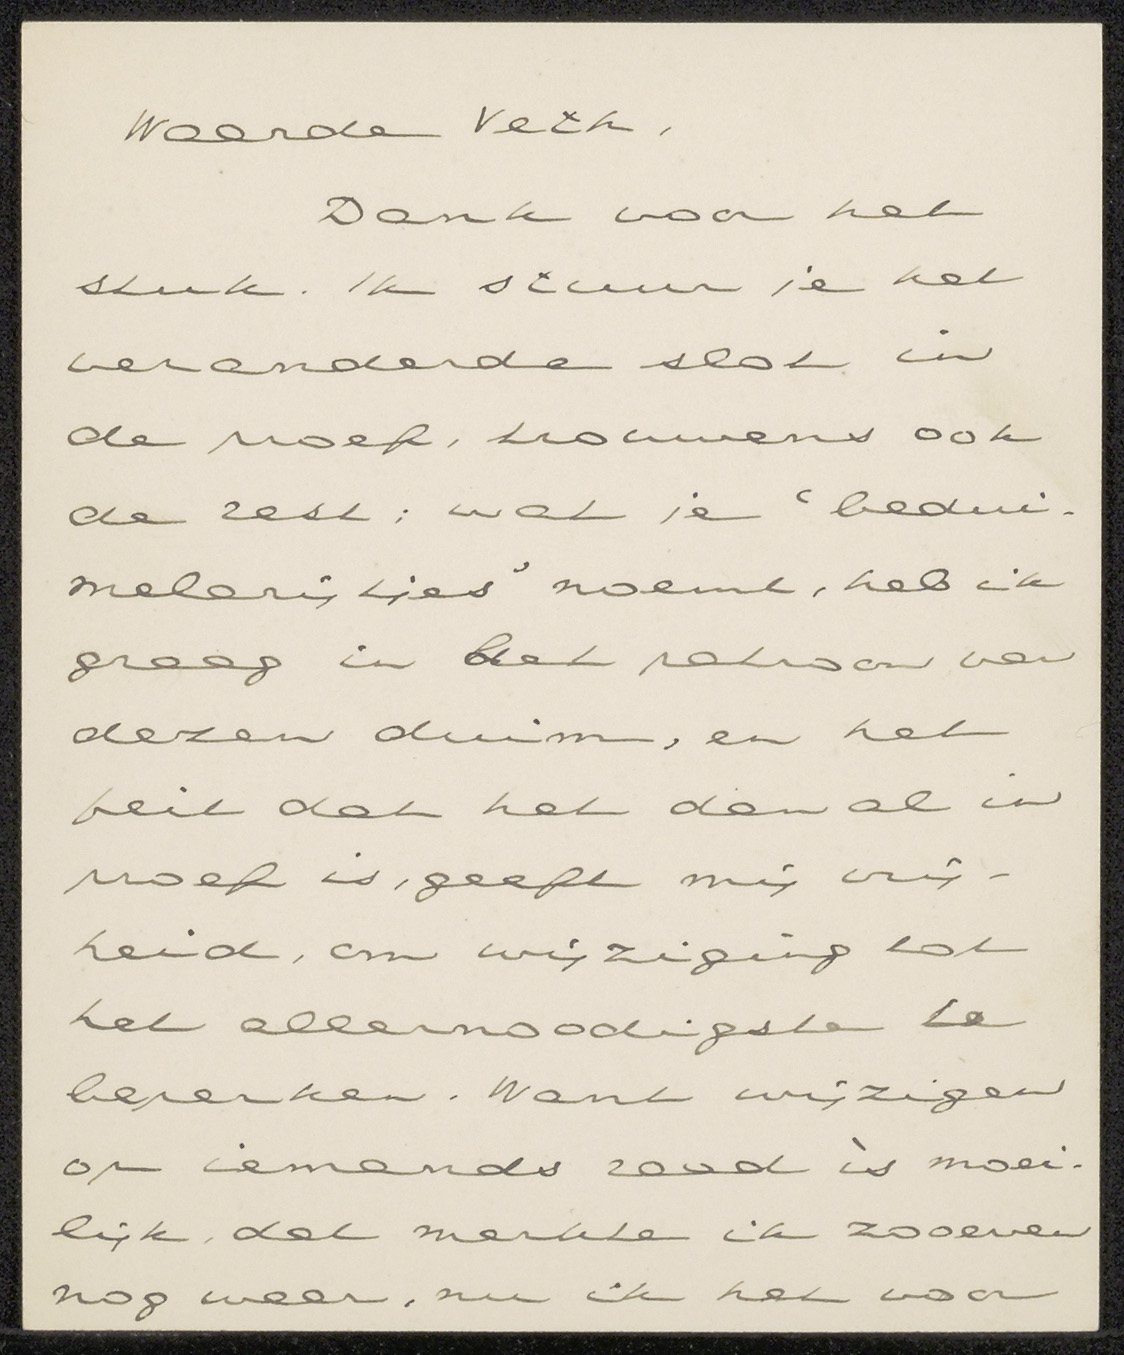 Waarde Veth,
Dank voor het
stuk. Ik stuur je het
veranderde slot in
de proef, trouwens ook
de rest; wat je 'bedui-
melarijtjes' noemt, heb ik
graag in het patroon van
dezen duim, en het
feit dat het dan al in
proef is, geeft mij vrij-
heid, om wijziging tot
het allernoodigste te
beperken. Want wijzigen
op iemands raad ìs moei-
lijk, dat merkte ik zooeven
nog weer, nu ik het voor